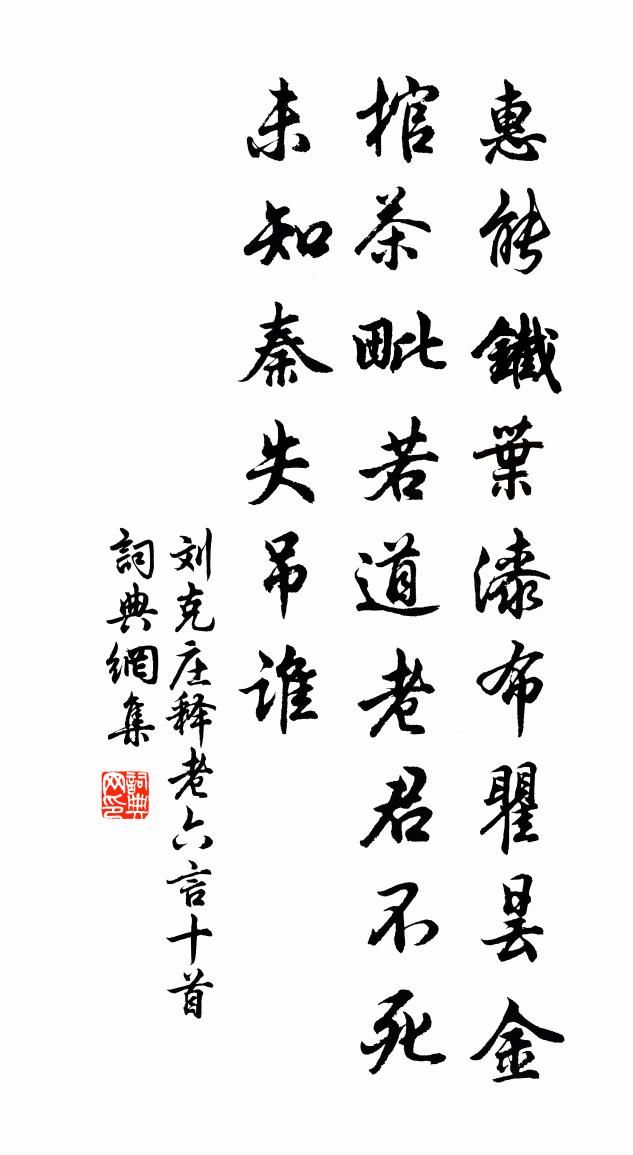 惠能鐵葉漆布瞿昙金
棺茶毗若道老君不死
未知秦失吊谁
刘克庄释老六言十首
詞典網集
詞典网印